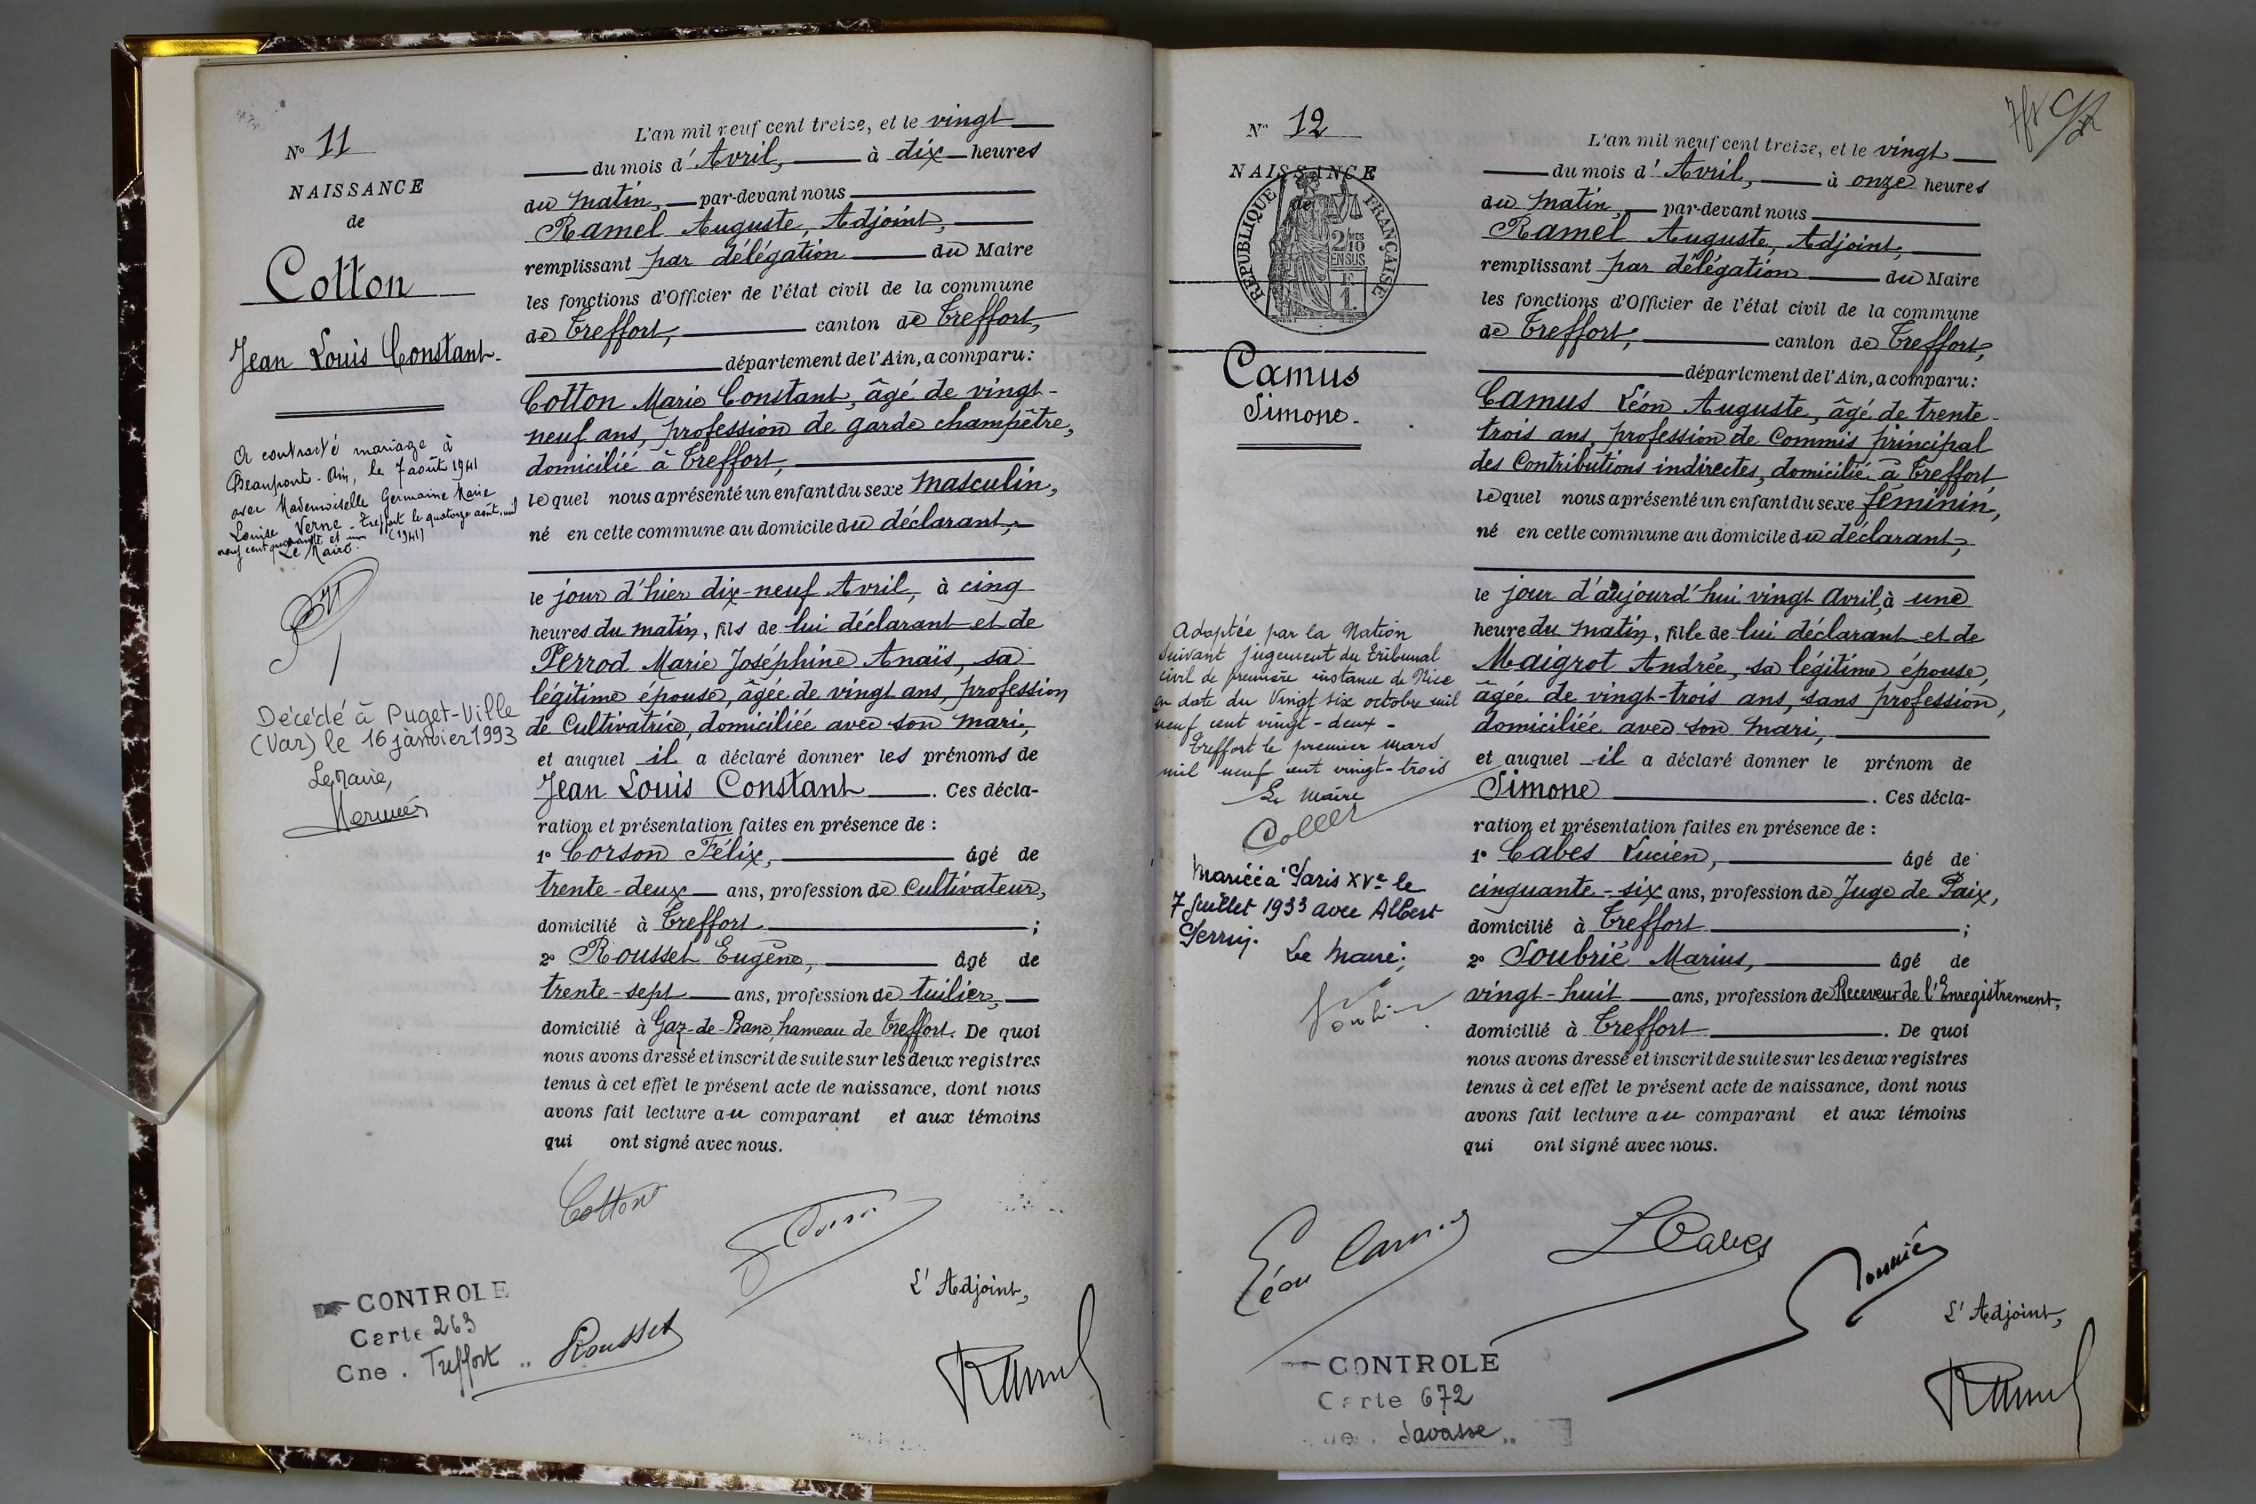 N° 11
NAISSANCE
de
Cotton
Jean Louis Constant.
A contracté mariage à
Beaupont-Ain, le 7 août 1941
avec Mademoiselle Germaine Marie
Louise Verne - Treffort le quatorze août mil
neuf cent quarante et un (1941)
Le Maire.
Décédé à Puget-Ville
(Var) le 16 janvier 1993
Le Maire,
L'an mil neuf cent treize, et le vingt
du mois d'Avril, à dix heures
du matin, par-devant nous
Ramel Auguste, Adjoint,
remplissant par délégation du Maire
les fonctions d'Officier de l'état civil de la commune
de Treffort, canton de Treffort,
département de l'Ain, a comparu:
Cotton Marie Constant, âgé de vingt-
neuf ans, profession de garde champêtre,
domicilié à Treffort,
lequel nous a présenté un enfant du sexe masculin,
né en cette commune au domicile du déclarant,
le jour d'hier dix-neuf Avril, à cinq
heures du matin, fils de lui déclarant et de
Perrod Marie Joséphine Anaïs, sa
légitime épouse, âgée de vingt ans, profession
de Cultivatrice, domiciliée avec son mari,
et auquel il a déclaré donner les prénoms de
Jean Louis Constant. Ces décla-
ration et présentation faites en présence de :
1° Corson Félix, âgé de
trente-deux ans, profession de Cultivateur,
domicilié à Treffort ;
2° Rousset Eugène, âgé de
trente-sept ans, profession de tuilier,
domicilié à Gaz-de-Banc, hameau de Treffort. De quoi
nous avons dressé et inscrit de suite sur les deux registres
tenus à cet effet le présent acte de naissance, dont nous
avons fait lecture au comparant et aux témoins
qui ont signé avec nous.
Cotton
L'Adjoint,
CONTROLE
Carte 263
Cne. Treffort
Rousset
Ramel
N° 12
NAISSANCE
de
RÉPUBLIQUE FRANÇAISE
2/10 MES
EN SUS
F
1.
Camus
Simone.
Adoptée par la Nation
suivant jugement du tribunal
civil de première instance de Nice
en date du Vingt six octobre mil
neuf cent vingt-deux -
Treffort le premier mars
mil neuf cent vingt-trois
Le Maire
Mariée à Paris XVe le
7 Juillet 1933 avec Albert
Perrin.
Le Maire,
L'an mil neuf cent treize, et le vingt
du mois d'Avril, à onze heures
du matin, par-devant nous
Ramel Auguste, Adjoint,
remplissant par délégation du Maire
les fonctions d'Officier de l'état civil de la commune
de Treffort, canton de Treffort,
département de l'Ain, a comparu:
Camus Léon Auguste, âgé de trente-
trois ans, profession de Commis principal
des Contributions indirectes, domicilié à Treffort
lequel nous a présenté un enfant du sexe féminin,
né en cette commune au domicile du déclarant,
le jour d'aujourd'hui vingt Avril, à une
heure du matin, fille de lui déclarant et de
Maigrot Andrée, sa légitime épouse,
âgée de vingt-trois ans, sans profession,
domiciliée avec son mari,
et auquel il a déclaré donner le prénom de
Simone. Ces décla-
ration et présentation faites en présence de :
1° Cabes Lucien, âgé de
cinquante-six ans, profession de Juge de Paix,
domicilié à Treffort ;
2° Soubrié Marius, âgé de
vingt-huit ans, profession de Receveur de l'Enregistrement,
domicilié à Treffort. De quoi
nous avons dressé et inscrit de suite sur les deux registres
tenus à cet effet le présent acte de naissance, dont nous
avons fait lecture au comparant et aux témoins
qui ont signé avec nous.
Léon Camus
L Cabes
L'Adjoint,
CONTROLE
Carte 672
Savasse
Ramel